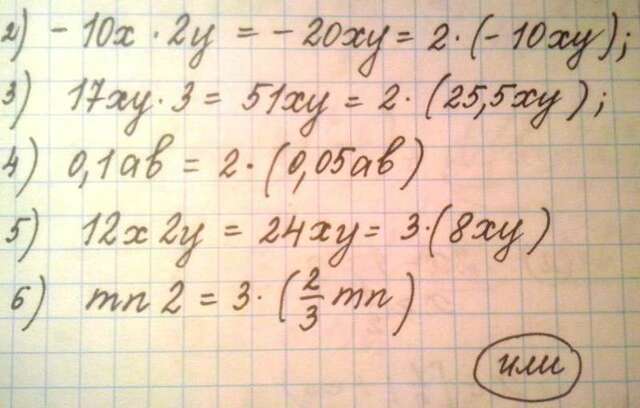 2) - 10x · 2y = - 20xy = 2 · (- 10xy);
3) 17xy · 3 = 51xy = 2 · (25,5xy);
4) 0,1ав = 2 · (0,05ав)
5) 12x 2y = 24xy = 3 · (8xy)
6) mn 2 = 3 · (2/3 mn)
или